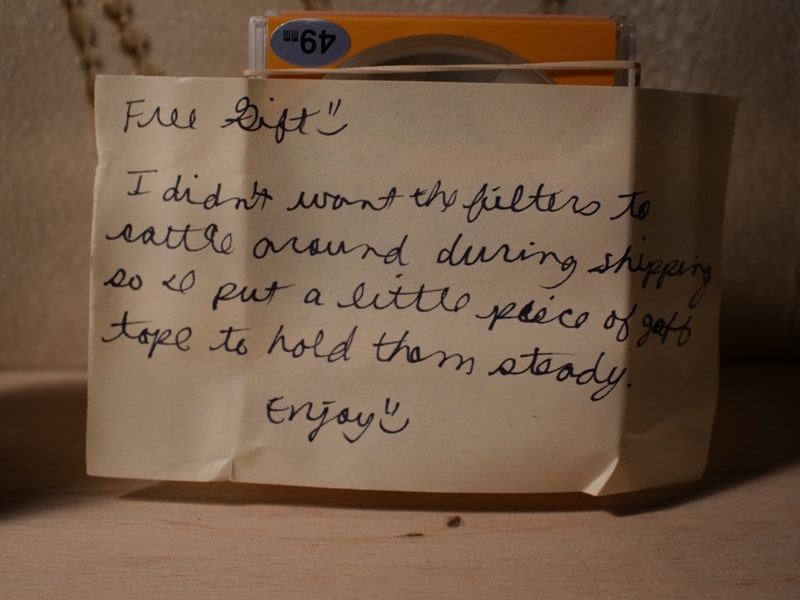 49mm
Free Gift
I didn't want the filters to
rattle around during shipping
so I put a little piece of gaff
tape to hold them steady.
Enjoy